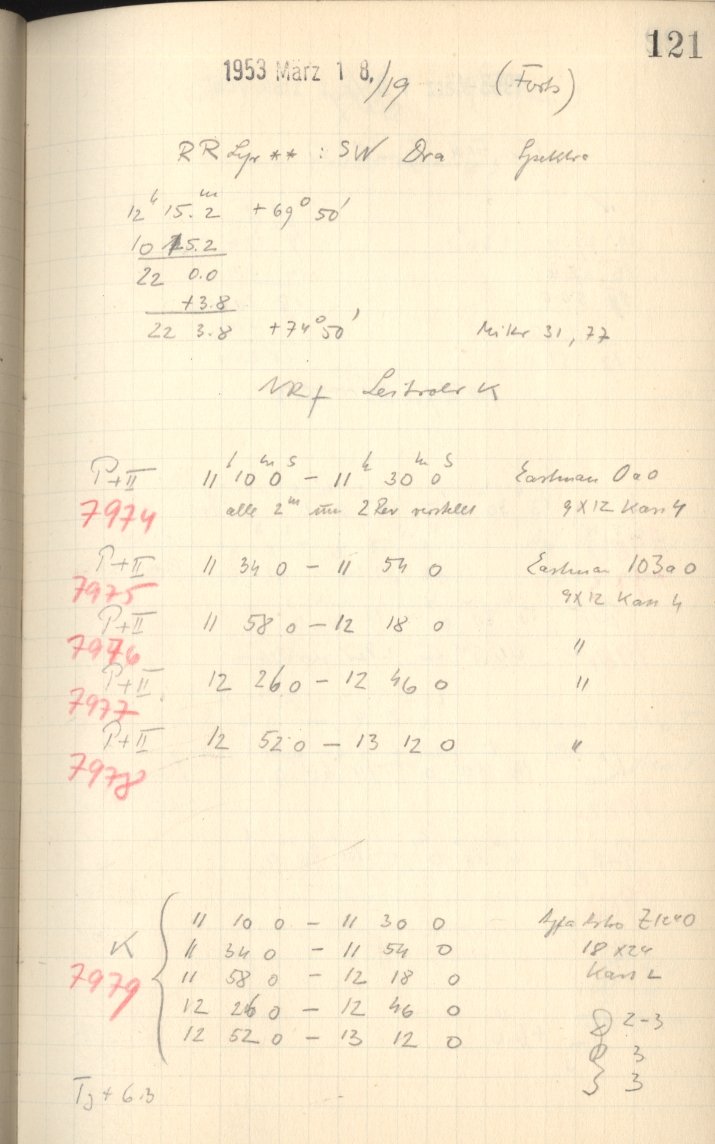 121
1953 März 18./19 (Forts)
RR Lyr ** : SW Dra Spektra
12h 15.m2 +69° 50'
10 45.2
22 0.0
+3.8
22 3.8 +74° 50' Mikr 31, 77
Leitrohr K
P+II 11h 10m 0s – 11h 30m 0s Eastman 0a0
7974 alle 2m um 2 Rev verstellt 9X12 Kass 4
P+II 11 34 0 – 11 54 0 Eastman 103a0
7975 9X12 Kass 4
P+II 11 58 0 – 12 18 0 "
7976
P+II 12 26 0 – 12 46 0 "
7977
P+II 12 52 0 – 13 12 0 "
7978
11 10 0 – 11 30 0 Agfa Astro Z
K 11 34 0 – 11 54 0 18 X 24
7979 11 58 0 – 12 18 0 Kass
12 26 0 – 12 46 0
12 52 0 – 13 12 0 2-3
3
3
+ 6.3